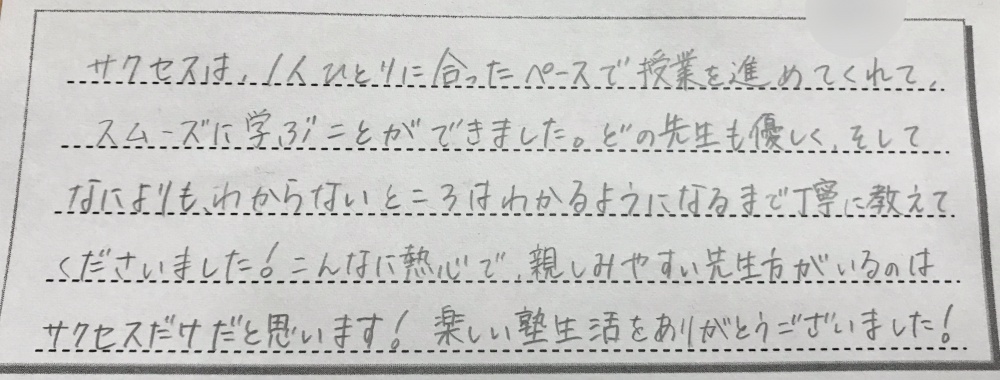 サクセスは、1人ひとりに合ったペースで授業を進めてくれて、
スムーズに学ぶことができました。どの先生も優しく、そして
なによりも、わからないところはわかるようになるまで丁寧に教えて
くださいました！こんなに熱心で、親しみやすい先生方がいるのは
サクセスだけだと思います！楽しい塾生活をありがとうございました！